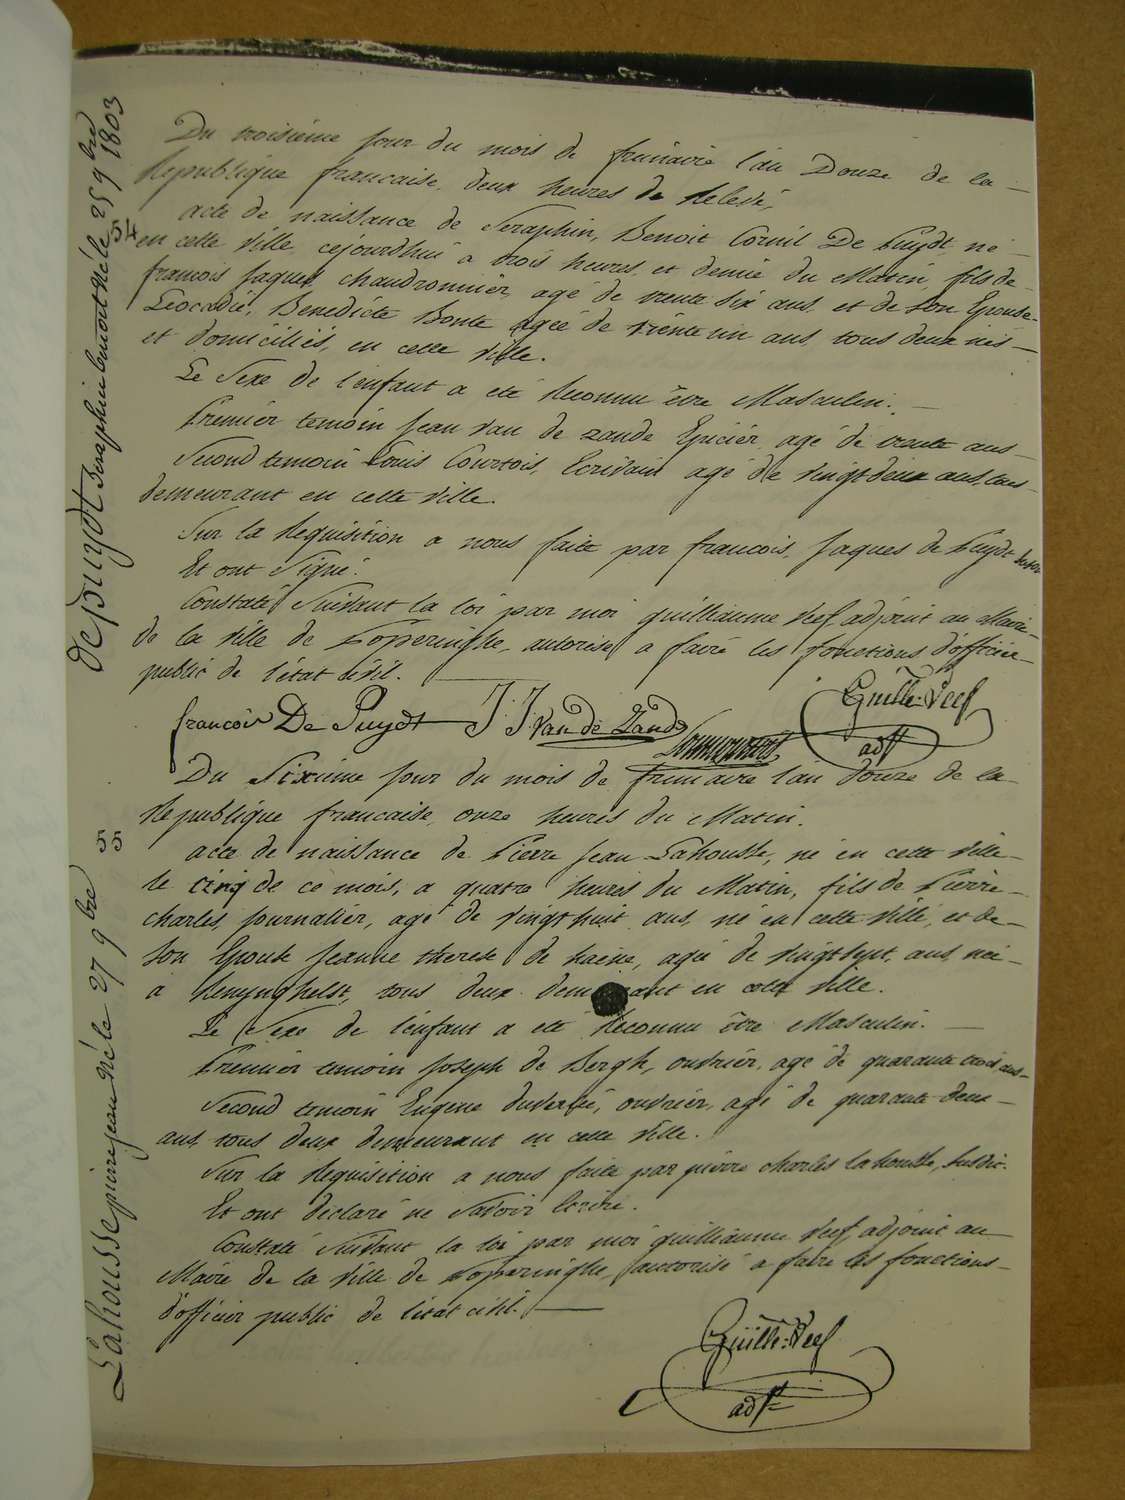 Du troisieme jour du mois de frimaire l'an Douze de la
Republique francaise, deux heures de Relevé,
acte de naissance de Seraphin, Benoit Cornil De Puydt, né
en cette ville, cejourdhui a trois heures et demie du Matin, fils de
francois Jaques, chaudronnier, agé de trente six ans, et de son Epouse
Leocadie, Benedicte Bonte agée de trente un ans, tous deux nés
et domiciliés, en cette ville.
Le Sexe de l'enfant a eté Reconnu être Masculin.
Premier temoin Jean Van de Zande Epicier agé de trente ans
Second temoin Louis Courtois, Ecrivain agé de vingt deux ans, tous
demeurant en cette ville.
Sur la Requisition a nous faite par francois Jaques de Puydt susdit
Et ont Signé.
Constaté Suivant la loi par moi guilliaume Veef adjoint au Maire
de la Ville de Poperinghe, autorisé a faire les fonctions d'officier
public de l'etat civil.
françois De Puydt J J Van de Zande
Guille. Veef
adjt
Du Sixieme jour du mois de frimaire l'an douze de la
Republique francaise, onze heures du Matin.
acte de naissance de Pierre Jean Lahousse, né en cette ville
le cinq de ce mois, a quatre heures du Matin, fils de Pierre
charles, journalier, agé de vingt huit ans, né en cette ville, et de
son Epouse Jeanne therese de haene, agée de vingt sept ans, née
a Renynghelst, tous deux demeurant en cette ville.
Le Sexe de l'enfant a eté Reconnu être Masculin.
Premier temoin Joseph de Bergh, ouvrier, agé de quarante trois ans
Second temoin Eugene duverlié, ouvrier, agé de quarante deux
ans, tous deux demeurant en cette ville.
Sur la Requisition a nous faite par pierre charles lahousse, susdit.
Et ont declaré ne Savoir Ecrire.
Constaté Suivant la loi par moi guilliaume Veef adjoint au
Maire de la Ville de Poperinghe, autorisé a faire les fonctions
d'officier public de l'etat civil.
Guille. Veef
adjt
54
depuydt Seraphin benoit Né le 25 9bre 1803
55
Lahousse pierre jean Né le 27 9bre